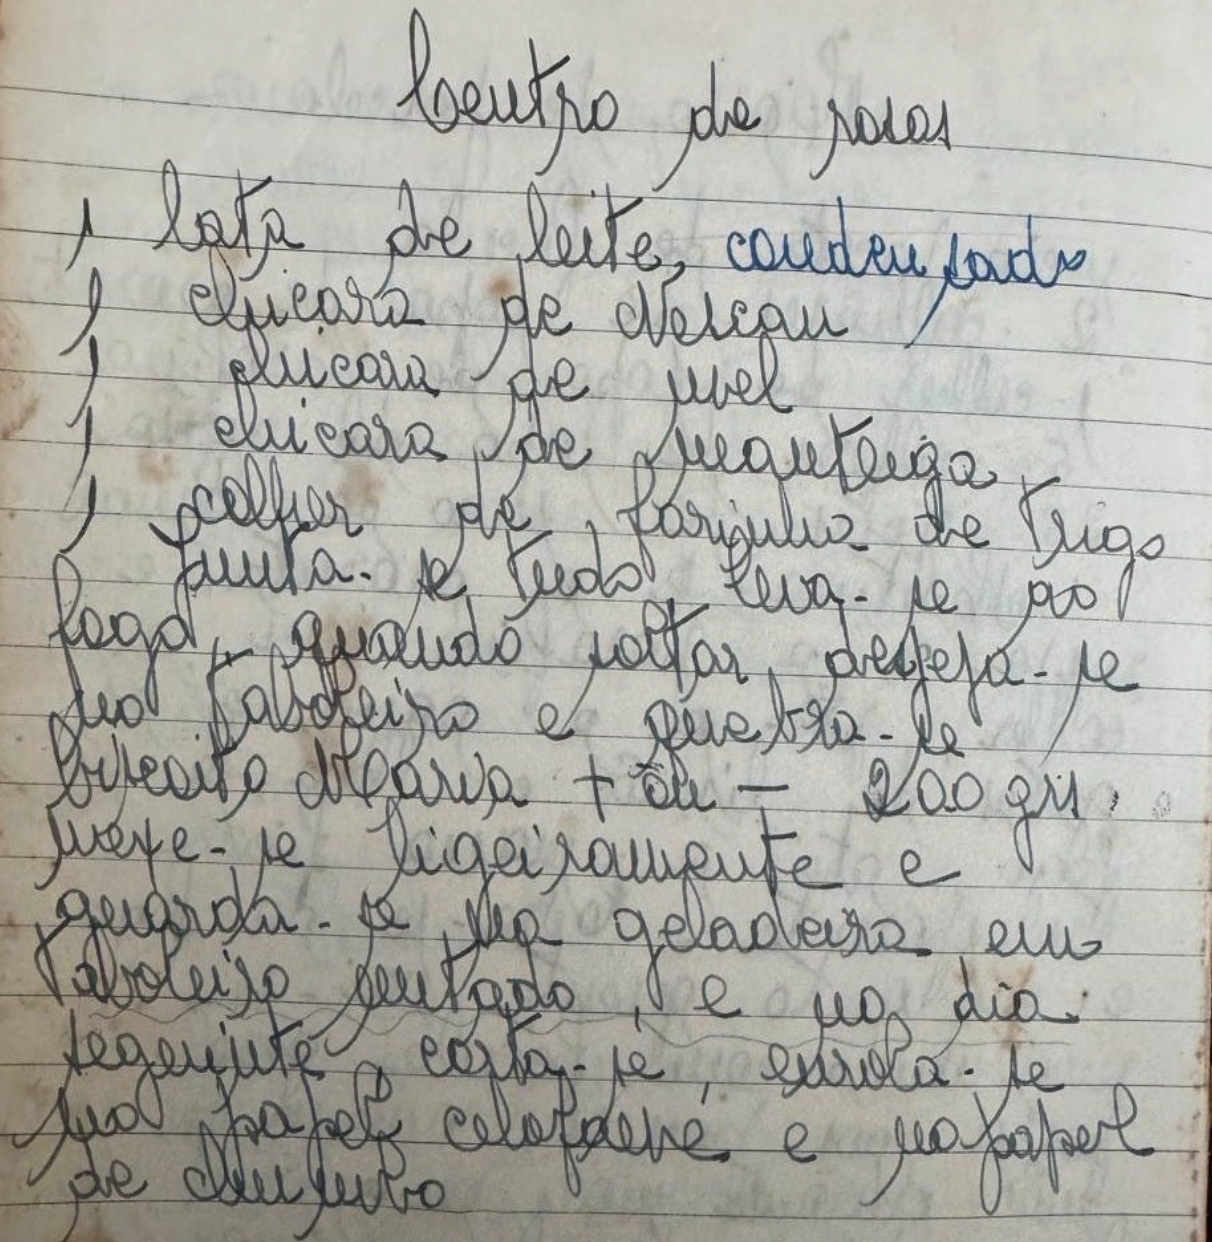 Centro de rosas
1 lata de leite, condensado
1 chicara de Nescau
1 chicara de mel
1 chicara de manteiga
1 colher de farinha de trigo
junta-se tudo leva-se ao
fogo, quando soltar, despeja-se
no taboleiro e quebra-se
biscoito Maria + ou - 200 grs.
mexe-se ligeiramente e
guarda-se na geladeira em
taboleiro untado, e no dia
seguinte, corta-se, enrola-se
no papel celofane e no papel
de chumbo